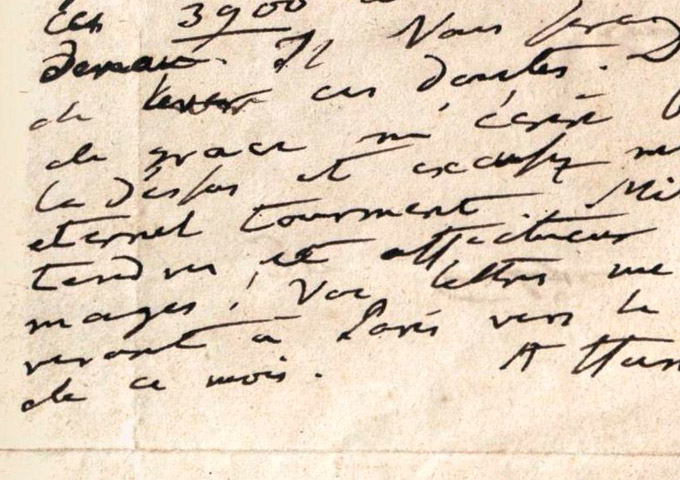 ces 3900
Il Vous
de lever ces doutes. D
de grace m'écrire
la dessus et excusez m
eternel tourment. Mi
tendres et affectueux
mages! Vos lettres me
veront à Paris vers le
de ce mois. A Hum